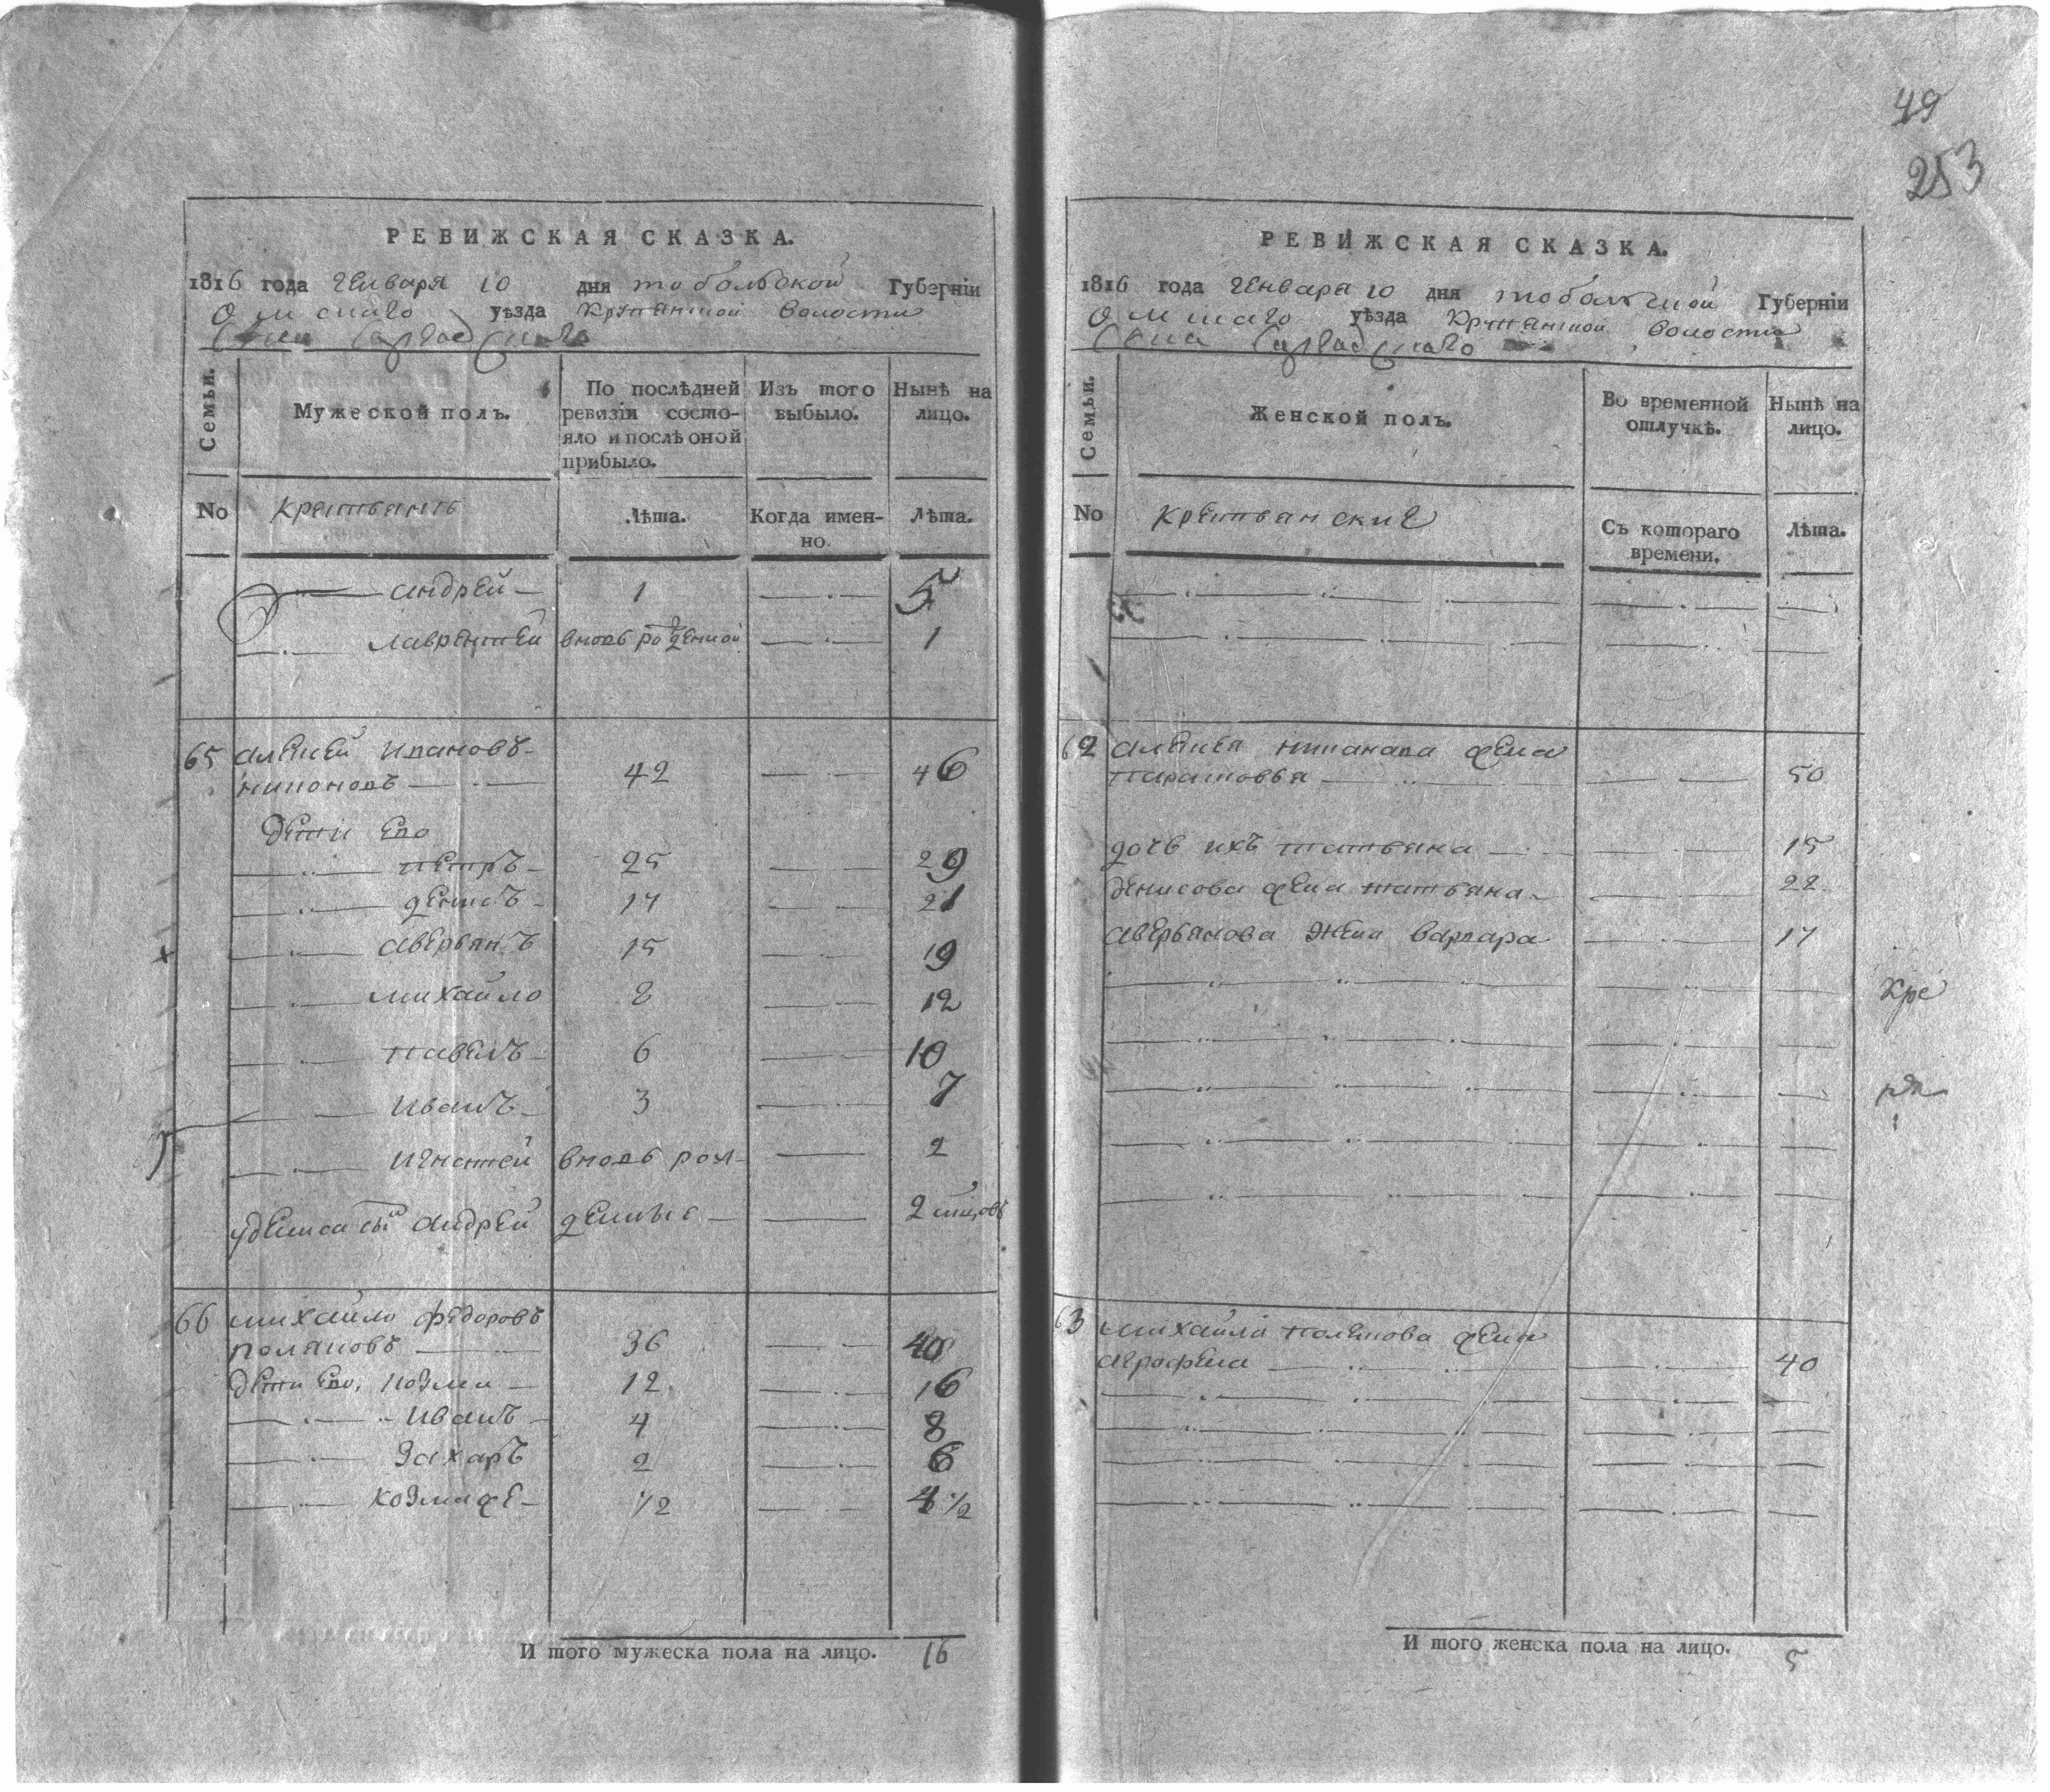 49
253
РЕВИЖСКАЯ СКАЗКА.
1816 года Генваря 10 дня тобольской Губерніи
Омскаго уѣзда волости
Мужеской полъ.
Семьи.
По послѣдней ревизіи состо-
яло и послѣ оной
прибыло.
Изъ того выбыло.
Нынѣ на лицо.
No крестьянъ Лѣта. Когда имен-
но. Лѣта.
андрей 1 5
лаврентей вновь рожденной 1
65 алексей ивановъ
42 46
дети его
петръ 25 29
денисъ 17 21
аверьянъ 15 19
михайло 8 12
павелъ 6 10
иванъ 3 7
игнатей вновь рож- 2
у дениса сынъ андрей денные 2
66 михайло федоровъ
поляковъ 36 40
дети его, козма 12 16
иванъ 4 8
захаръ 2 6
козма же 1/2 4 1/2
И того мужеска пола на лицо. 16
РЕВИЖСКАЯ СКАЗКА.
1816 года Генваря 10 дня тобольской Губерніи
Омскаго уѣзда волости
Семьи.
Женской полъ.
Во временной отлучкѣ.
Нынѣ на лицо.
No крестьянские Съ котораго
времени. Лѣта.
62 алексея жена
50
дочь ихъ татьяна 15
денисова жена татьяна 22
аверьянова жена варвара 17
63 михайла полякова жена
аграфена 40
И того женска пола на лицо. 5